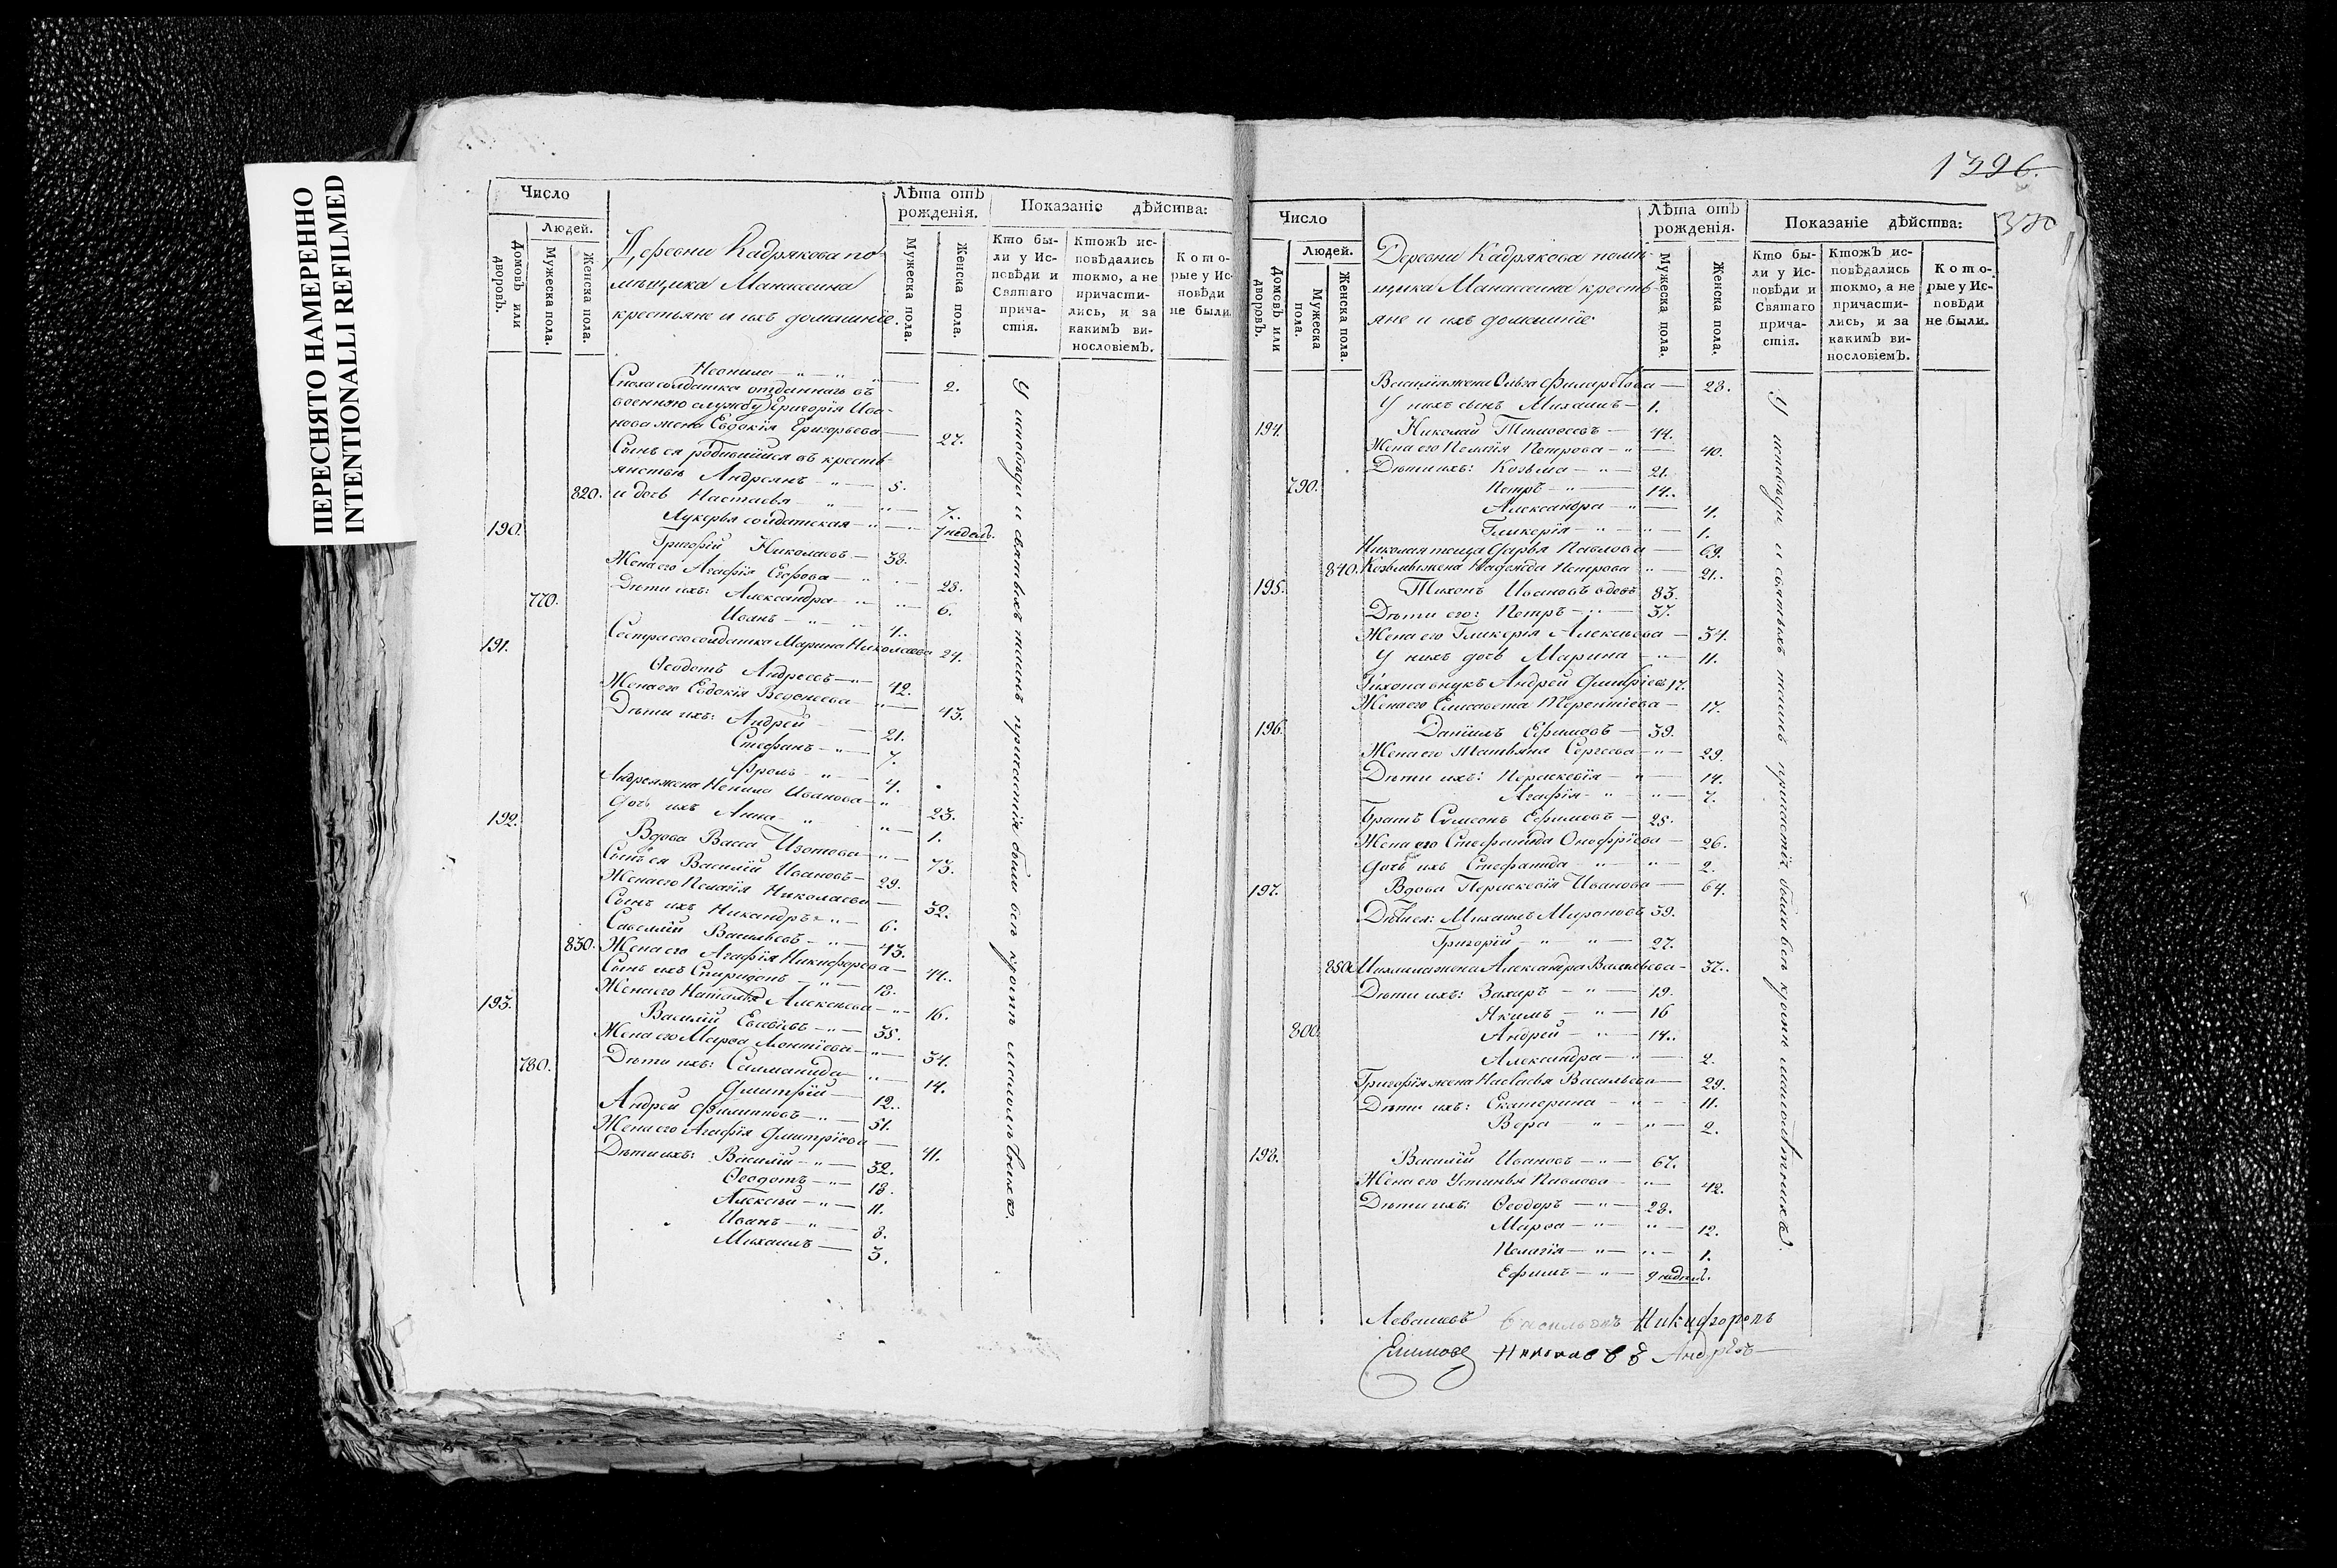 ПЕРЕСНЯТО НАМЕРЕННО
INTENTIONALLI REFILMED
Число
Людей.
Домовъ или дворовъ.
Мужеска пола.
Женска пола.
Деревни Кадрякова по-
мѣщика Манассеина
крестьяне и ихъ домашніе.
Лѣта отъ рожденія.
Мужеска пола.
Женска пола.
Показаніе дѣйства:
Кто были у Исповѣди и Святаго причастія.
Ктожъ исповѣдались токмо, а не причастились, и за какимъ винословіемъ.
Которые у Исповѣди не были.
Неонила 2.
Сноха солдатка отданнаго въ
военную службу Григорія Ива-
нова жена Евдокія Григорьева 27.
Сынъ ея родившійся въ кресть-
янствѣ Андреянъ 5.
820. и дочь Настасья 7.
Лукерья солдатская 7 недель.
190. Григорій Николаевъ 38.
Жена его Агафія Егорова 28.
Дѣти ихъ: Александра 6.
770. Иванъ 4.
Сестра его солдатка Марина Николаева 24.
191. Ѳеодотъ Андреевъ 42.
Жена его Евдокія 43.
Дѣти ихъ: Андрей 21.
Стефанъ 7.
Фролъ 4.
Андрея жена Ненила Иванова 23.
Дочь ихъ Анна 1.
192. Вдова Васса Изотова 73.
Сынъ ея Василій Ивановъ 29.
Жена его Пелагія Николаева 32.
Сынъ ихъ Никандръ 6.
Савелій Васильевъ 43.
830. Жена его Агафія Никифорова 44.
Сынъ ихъ Спиридонъ 18.
Жена его Наталья Алексеева 16.
193. Василій Евсевіевъ 35.
Жена его Марѳа Леонтіева 34.
Дѣти ихъ: Саломанида 14.
780. Дмитрій 12.
Андрей Филиповъ 51.
Жена его Агафія Дмитріева 41.
Дѣти ихъ: Василій 32.
Ѳеодотъ 18.
Алексѣй 11.
Иванъ 8.
Михаилъ 3.
У исповѣди и святыхъ таинъ причастія были всѣ кромѣ малолѣтнихъ.
1396.
380
Число
Людей.
Домовъ или дворовъ.
Мужеска пола.
Женска пола.
Деревни Кадрякова помѣ-
щика Манассеина кресть-
яне и ихъ домашніе
Лѣта отъ рожденія.
Мужеска пола.
Женска пола.
Показаніе дѣйства:
Кто были у Исповѣди и Святаго причастія.
Ктожъ исповѣдались токмо, а не причастились, и за какимъ винословіемъ.
Которые у Исповѣди не были.
Василія жена Ольга Филаретова 28.
У нихъ сынъ Михаилъ 1.
194. Николай Тимоѳеевъ 44.
Жена его Пелагія Петрова 40.
Дѣти ихъ: Козьма 21.
790. Петръ 14.
Александра 4.
Гликерія 1.
Николая теща Дарья Павлова 69.
840. Козьмы жена Надежда Петрова 21.
195. Тихонъ Ивановъ вдовъ 83.
Дѣти его: Петръ 37.
Жена его Гликерія Алексѣева 34.
У нихъ дочь Марина 11.
Тихона внукъ Андрей Дмитріевъ 17.
Жена его Елисавета Терентіева 17.
196. Даніилъ Ефимовъ 39.
Жена его Татьяна Сергеева 29.
Дѣти ихъ: Параскевія 14.
Агафія 7.
Братъ Симеонъ Ефимовъ 25.
Жена его Стефанида Онофріева 26.
Дочь ихъ Стефанида 2.
197. Вдова Параскевія Иванова 64.
Дѣти ея: Михаилъ Мироновъ 39.
Григорій 27.
850. Михаила жена Александра Васильева 37.
Дѣти ихъ: Захаръ 19.
Якимъ 16
800. Андрей 14.
Александра 2.
Григорія жена Настасья Васильева 29.
Дѣти ихъ: Екатерина 11.
Вера 2.
198. Василій Ивановъ 67.
Жена его Устинья Павлова 42.
Дѣти ихъ: Ѳеодоръ 28.
Марѳа 12.
Пелагія 1.
Ефимъ 9 недѣль.
У исповѣди и святыхъ таинъ причастія были всѣ кромѣ малолѣтнихъ.
Левашевъ Никифоровъ
Андрей